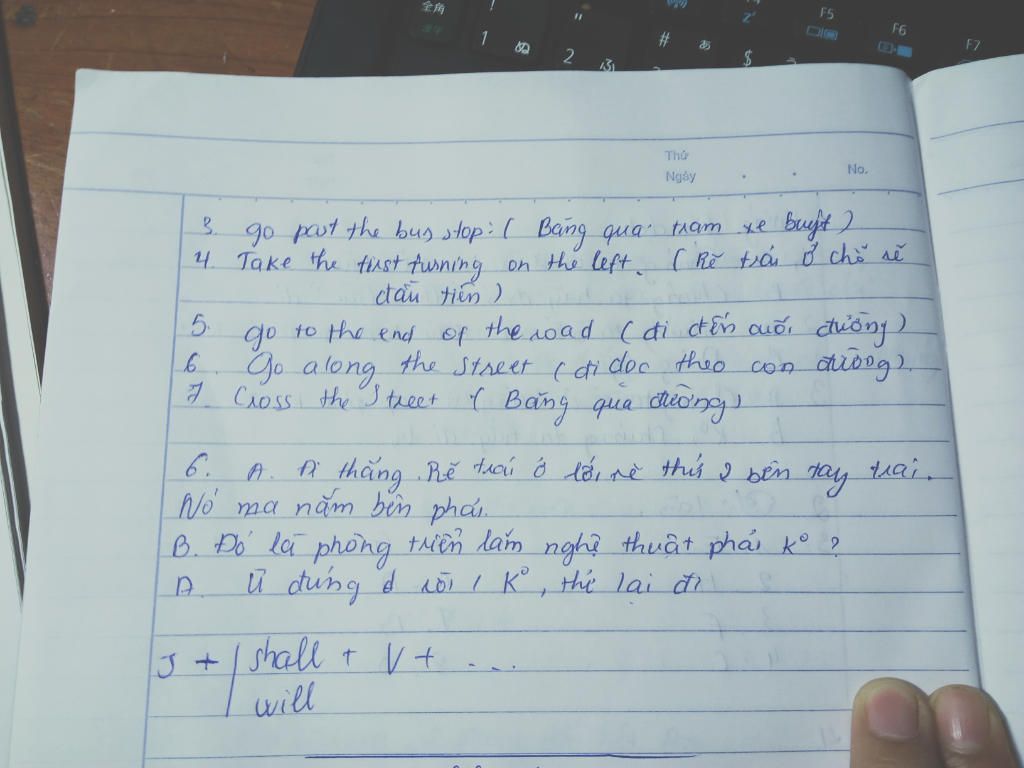 全角
!
1 ぬ
"
2 ふ
#
あ
$
F5
F6
F7
Thứ
Ngày . . No.
3. go past the bus stop: ( Băng qua trạm xe buýt )
4. Take the first turning on the left. ( Rẽ trái ở chỗ rẽ
đầu tiên )
5. go to the end of the road ( đi đến cuối đường )
6. Go along the street ( đi dọc theo con đường ).
7. Cross the Street ( Băng qua đường )
6. A. Đi thẳng. Rẽ trái ở lối rẽ thứ 2 bên tay trái.
Nó ma nằm bên phải.
B. Đó là phòng triển lãm nghệ thuật phải K⁰ ?
A. Ừ đúng rồi / K⁰, thử lại đi
S + | shall + V + ....
will